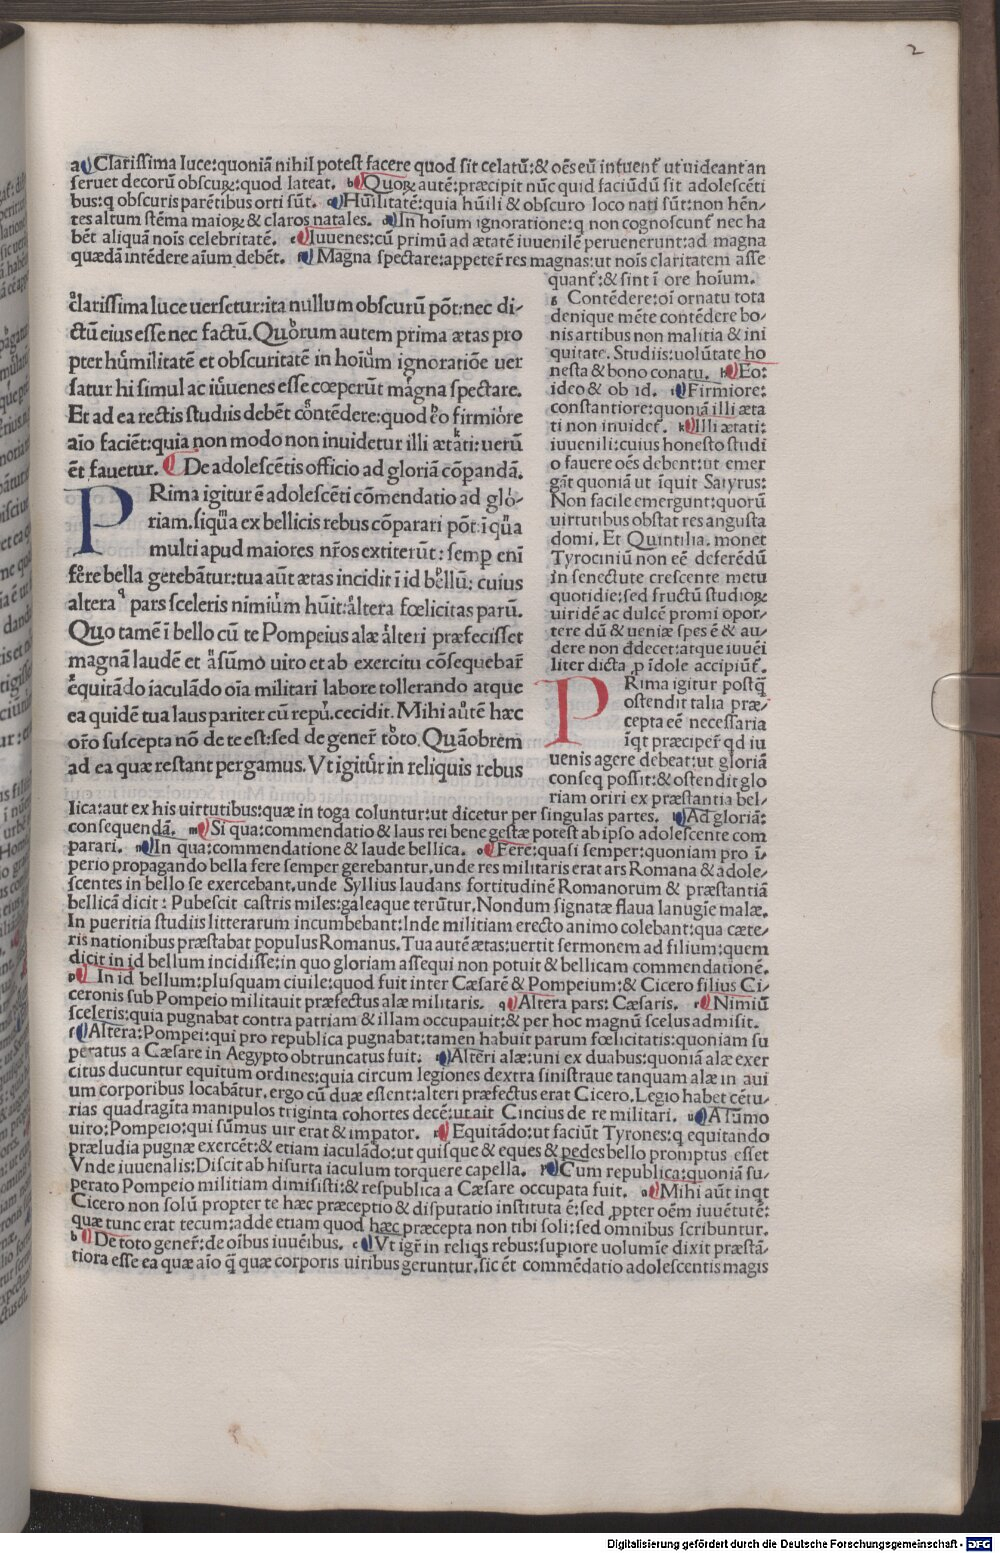 2
a Clarissima luce:quoniã nihil potest facere quod sit celatũ:& oẽs eũ intuent᷑ ut uideant an
seruet decorũ obscuꝝ:quod lateat. b Quoꝝ autẽ:præcipit nũc quid faciũdũ sit adolescẽti
bus:q obscuris parẽtibus orti sũt. c Hũilitatẽ:quia hũili & obscuro loco nati sũt:non hẽn⸗
tes altum stẽma maioꝝ & claros natales. d In hoĩum ignoratione:q non cognoscunt᷑ nec ha
bẽt aliquã noĩs celebritatẽ. e Iuuenes:cũ primũ ad ætatẽ iuuenilẽ peruenerunt:ad magna
quædã intẽdere aĩum debẽt. f Magna spectare:appeter᷑ res magnas:ut noĩs claritatem asse
quant᷑:& sint ĩ ore hoĩum.
g Contẽdere:oĩ ornatu tota
denique mẽte contẽdere bo⸗
nis artibus non malitia & ini
quitate. Studiis:uolũtate ho
nesta & bono conatu. h Eo:
ideo & ob id. i Firmiore:
constantiore:quoniã illi æta
ti non inuidet᷑. k Illi ætati:
iuuenili:cuius honesto studi
o fauere oẽs debent:ut emer
gãt quoniã ut ĩquit Satyrus:
Non facile emergunt:quorũ
uirtutibus obstat res angusta
domi. Et Quintilia. monet
Tyrociniũ non eẽ deferẽdũ
in senectute crescente metu
quotidie:sed fructũ studioꝝ
uiridẽ ac dulcẽ promi opor⸗
tere dũ & ueniæ spes ẽ & au⸗
dere non ddecet:atque iuuẽi
liter dicta ꝓ ĩdole accipiũt᷑.
clarissima luce uersetur:ita nullum obscurũ põt:nec di⸗
ctũ eius esse nec factũ. Quorum autem prima ætas pro
pter hũmilitatẽ et obscuritatẽ in hoĩum ignoratiõe uer
satur hi simul ac iuuenes esse cœperũt magna spectare.
Et ad ea rectis studiis debẽt contẽdere:quod eo firmiore
aĩo faciẽt:quia non modo non inuidetur illi ætati:uerũ
ẽt fauetur. De adolescẽtis officio ad gloriã cõpandã.
PRima igitur ẽ adolescẽti cõmendatio ad glo⸗
riam.siqua ex bellicis rebus cõparari põt:ĩ qua
multi apud maiores nr̃os extiterũt: semp enĩ
fere bella gerebãtur:tua aũt ætas incidit ĩ id bellũ: cuius
altera pars sceleris nimium hũit:altera fœlicitas parũ.
Quo tamẽ ĩ bello cũ te Pompeius alæ alteri præfecisset
magnã laudẽ et a sũmo uiro et ab exercitu cõsequebar᷑
equitãdo iaculãdo oĩa militari labore tollerando atque
ea quidẽ tua laus pariter cũ repũ.cecidit. Mihi aũtẽ hæc
or̃o suscepta nõ de te est:sed de gener᷑ toto. Quãobrem
ad ea quæ restant pergamus. Vt igitur in reliquis rebus
PRima igitur postq̃
ostendit talia præ⸗
cepta eẽ necessaria
ĩqt præciper᷑ qd iu
uenis agere debeat:ut gloriã
conseq possit:& ostendit glo
riam oriri ex præstantia bel⸗
lica:aut ex his uirtutibus:quæ in toga coluntur:ut dicetur per singulas partes. l Ad gloriã:
consequendã. m Si qua:commendatio & laus rei bene gestæ potest ab ipso adolescente com
parari. n In qua:commendatione & laude bellica. o Fere:quasi semper:quoniam pro ĩ⸗
perio propagando bella fere semper gerebantur.unde res militaris erat ars Romana & adole⸗
scentes in bello se exercebant.unde Syllius laudans fortitudinẽ Romanorum & præstantiã
bellicã dicit: Pubescit castris miles:galeaque terũtur. Nondum signatæ flaua lanugĩe malæ.
In pueritia studiis litterarum incumbebant:Inde militiam erecto animo colebant:qua cæte⸗
ris nationibus præstabat populus Romanus. Tua autẽ ætas:uertit sermonem ad filium:quem
dicit in id bellum incidisse:in quo gloriam assequi non potuit & bellicam commendationẽ.
p In id bellum:plusquam ciuile:quod fuit inter Cæsarẽ & Pompeium:& Cicero filius Ci⸗
ceronis sub Pompeio militauit præfectus alæ militaris. q Altera pars: Cæsaris. r Nimiũ
sceleris:quia pugnabat contra patriam & illam occupauit:& per hoc magnũ scelus admisit.
s Altera:Pompei:qui pro republica pugnabat:tamen habuit parum fœlicitatis:quoniam su
peratus a Cæsare in Aegypto obtruncatus fuit. t Alteri alæ:uni ex duabus:quoniã alæ exer
citus ducuntur equitum ordines:quia circum legiones dextra sinistraue tanquam alæ in aui
um corporibus locabãtur.ergo cũ duæ essent:alteri præfectus erat Cicero. Legio habet cẽtu⸗
rias quadragĩta manipulos triginta cohortes decẽ:ut ait Cincius de re militari. u A sũmo
uiro:Pompeio:qui sũmus uir erat & impator. x Equitãdo:ut faciũt Tyrones:q equitando
præludia pugnæ exercẽt:& etiam iaculado:ut quisque & eques & pedes bello promptus esset
Vnde iuuenalis:Discit ab hisurta iaculum torquere capella. y Cum republica:quoniã su⸗
perato Pompeio militiam dimisisti:& respublica a Cæsare occupata fuit. a Mihi aũt inqt
Cicero non solũ propter te hæc præceptio & disputatio instituta ẽ:sed ꝓpter oẽm iuuẽtutẽ:
quæ tunc erat tecum:adde etiam quod hæc præcepta non tibi soli:sed omnibus scribuntur.
b De toto gener᷑:de oĩbus iuuẽibus. c Vt igr̃ in reliqs rebus:supiore uolumĩe dixit præstã⸗
tiora esse ea quæ aĩo q̃ quæ corporis uiribus geruntur.sic ẽt commẽdatio adolescentis magis
Digitalisierung gefördert durch die Deutsche Forschungsgemeinschaft - DFG